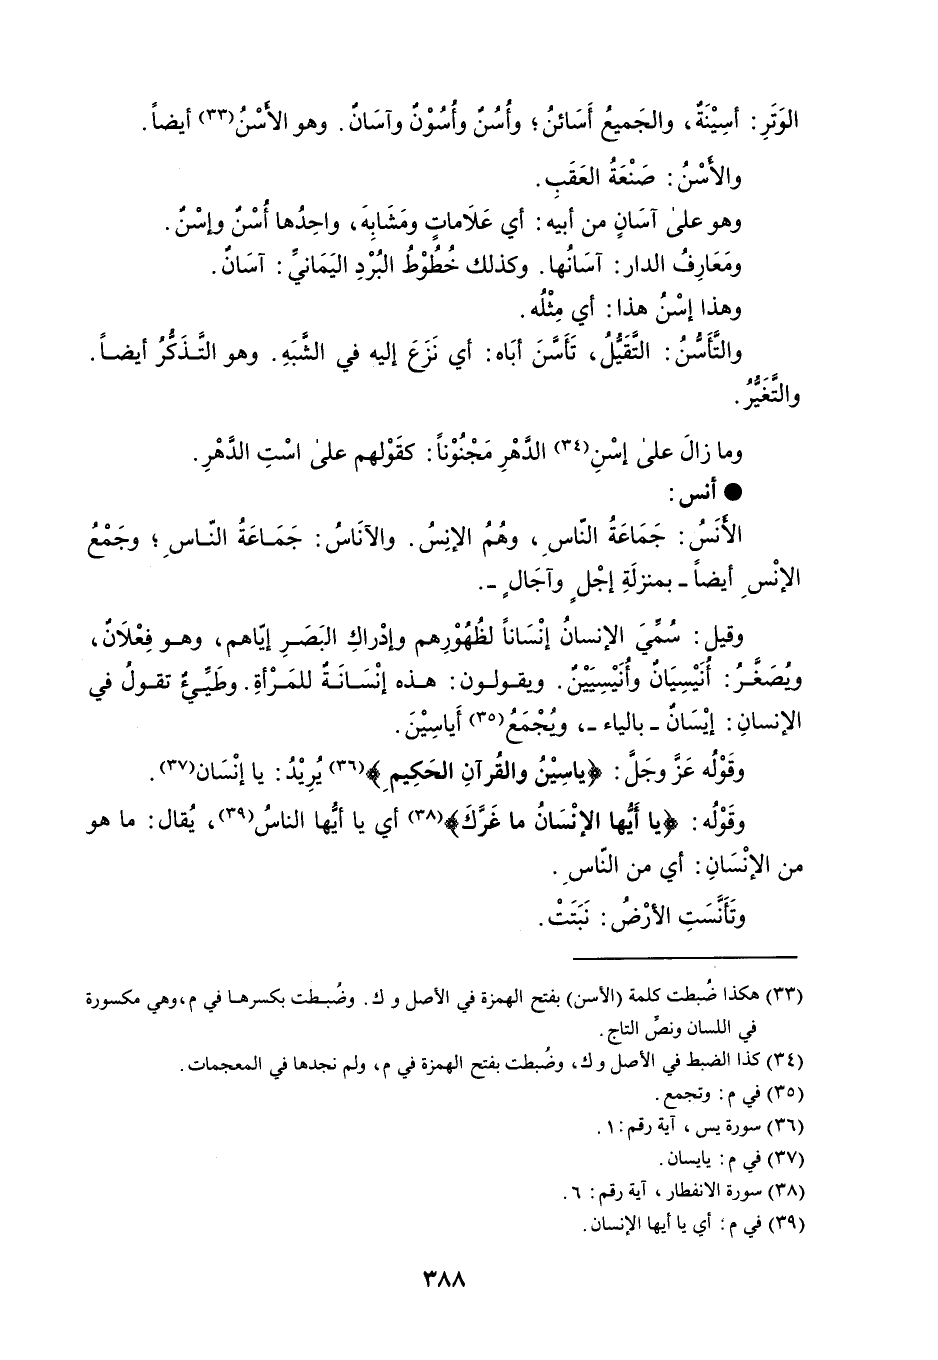 الوَتَرِ: أسِيْنَةٌ، والجَميعُ أَسَائنُ؛ وأُسُنٌ وأُسُوْنٌ وآسَانٌ. وهو الأَسْنُ(٣٣) أيضاً.
والأَسْنُ: صَنْعَةُ العَقَبِ.
وهو علىٰ آسَانٍ من أبيه: أي عَلَاماتٍ ومَشَابِهَ، واحِدُها أُسْنٌ وإسْنٌ.
ومَعَارِفُ الدار: آسَانُها. وكذلك خُطُوْطُ البُرْدِ اليَمَانيِّ: آسَانٌ.
وهذا إسْنُ هذا: أي مِثْلُه.
والتَّأَسُّنُ: التَّقَيُّلُ، تَأَسَّنَ أبَاه: أي نَزَعَ إليه في الشَّبَهِ. وهو التَّذَكُّرُ أيضاً.
والتَّغَيُّرُ.
وما زالَ علىٰ إسْنِ(٣٤) الدَّهْرِ مَجْنُوْناً: كقَوْلهم علىٰ اسْتِ الدَّهْرِ.
● أنس:
الأَنَسُ: جَمَاعَةُ النّاسِ، وهُمُ الإنِسُ. والآنَاسُ: جَمَاعَةُ النّاسِ؛ وجَمْعُ
الإنْسِ أيضاً ـ بمنزلَةِ إجْلٍ وآجَالٍ ـ.
وقيل: سُمِّيَ الإنسانُ إنْسَاناً لظُهُوْرِهم وإدْراكِ البَصَرِ إيّاهم، وهو فِعْلَانٌ،
ويُصَغَّرُ: أُنَيْسِيَانٌ وأُنَيْسِيَيْنٌ. ويقولون: هذه إنْسَانَةٌ للمَرْأةِ. وطَيِّىءٌ تقولُ في
الإنسانِ: إيْسَانٌ ـ بالياء ـ، ويُجْمَعُ(٣٥) أَياسِيْنَ.
وقَوْلُه عَزَّ وجَلَّ: ﴿ياسِيْنُ والقُرآنِ الحَكِيمِ﴾(٣٦) يُرِيْدُ: يا إنْسَان(٣٧).
وقَوْلُه: ﴿يا أَيُّها الإنْسَانُ ما غَرَّكَ﴾(٣٨) أي يا أيُّها الناسُ(٣٩)، يُقال: ما هو
من الإنْسَانِ: أي من النّاسِ.
وتَأَنَّسَتِ الأرْضُ: نَبَتَتْ.
(٣٣) هكذا ضُبطت كلمة (الأسن) بفتح الهمزة في الأصل و ك. وضُبطت بكسرها في م، وهي مكسورة
في اللسان ونصِّ التاج.
(٣٤) كذا الضبط في الأصل و ك، وضُبطت بفتح الهمزة في م، ولم نجدها في المعجمات.
(٣٥) في م: وتجمع.
(٣٦) سورة يس، آية رقم: ١.
(٣٧) في م: يايسان.
(٣٨) سورة الانفطار، آية رقم: ٦.
(٣٩) في م: أي يا أيها الإنسان.
٣٨٨